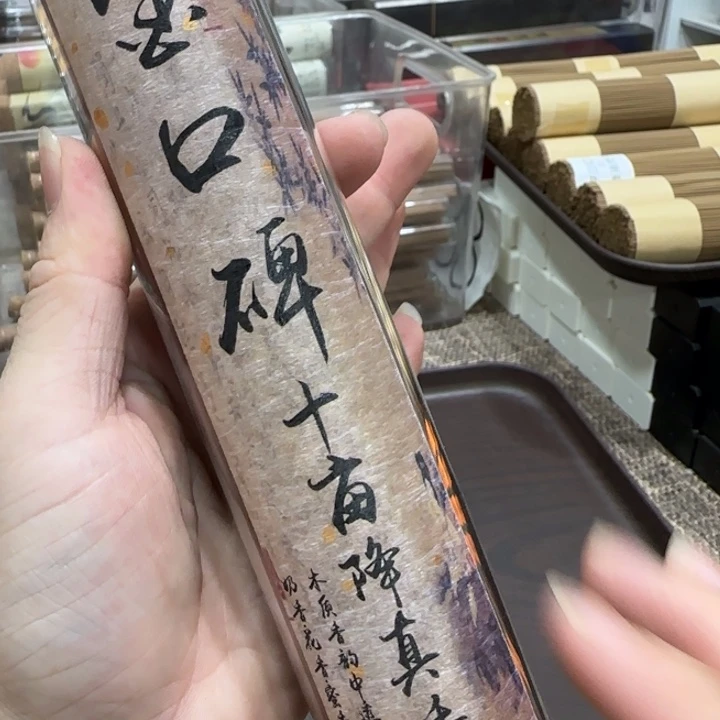 口碑十亩降真
木质香韵中透
奶香花香蜜